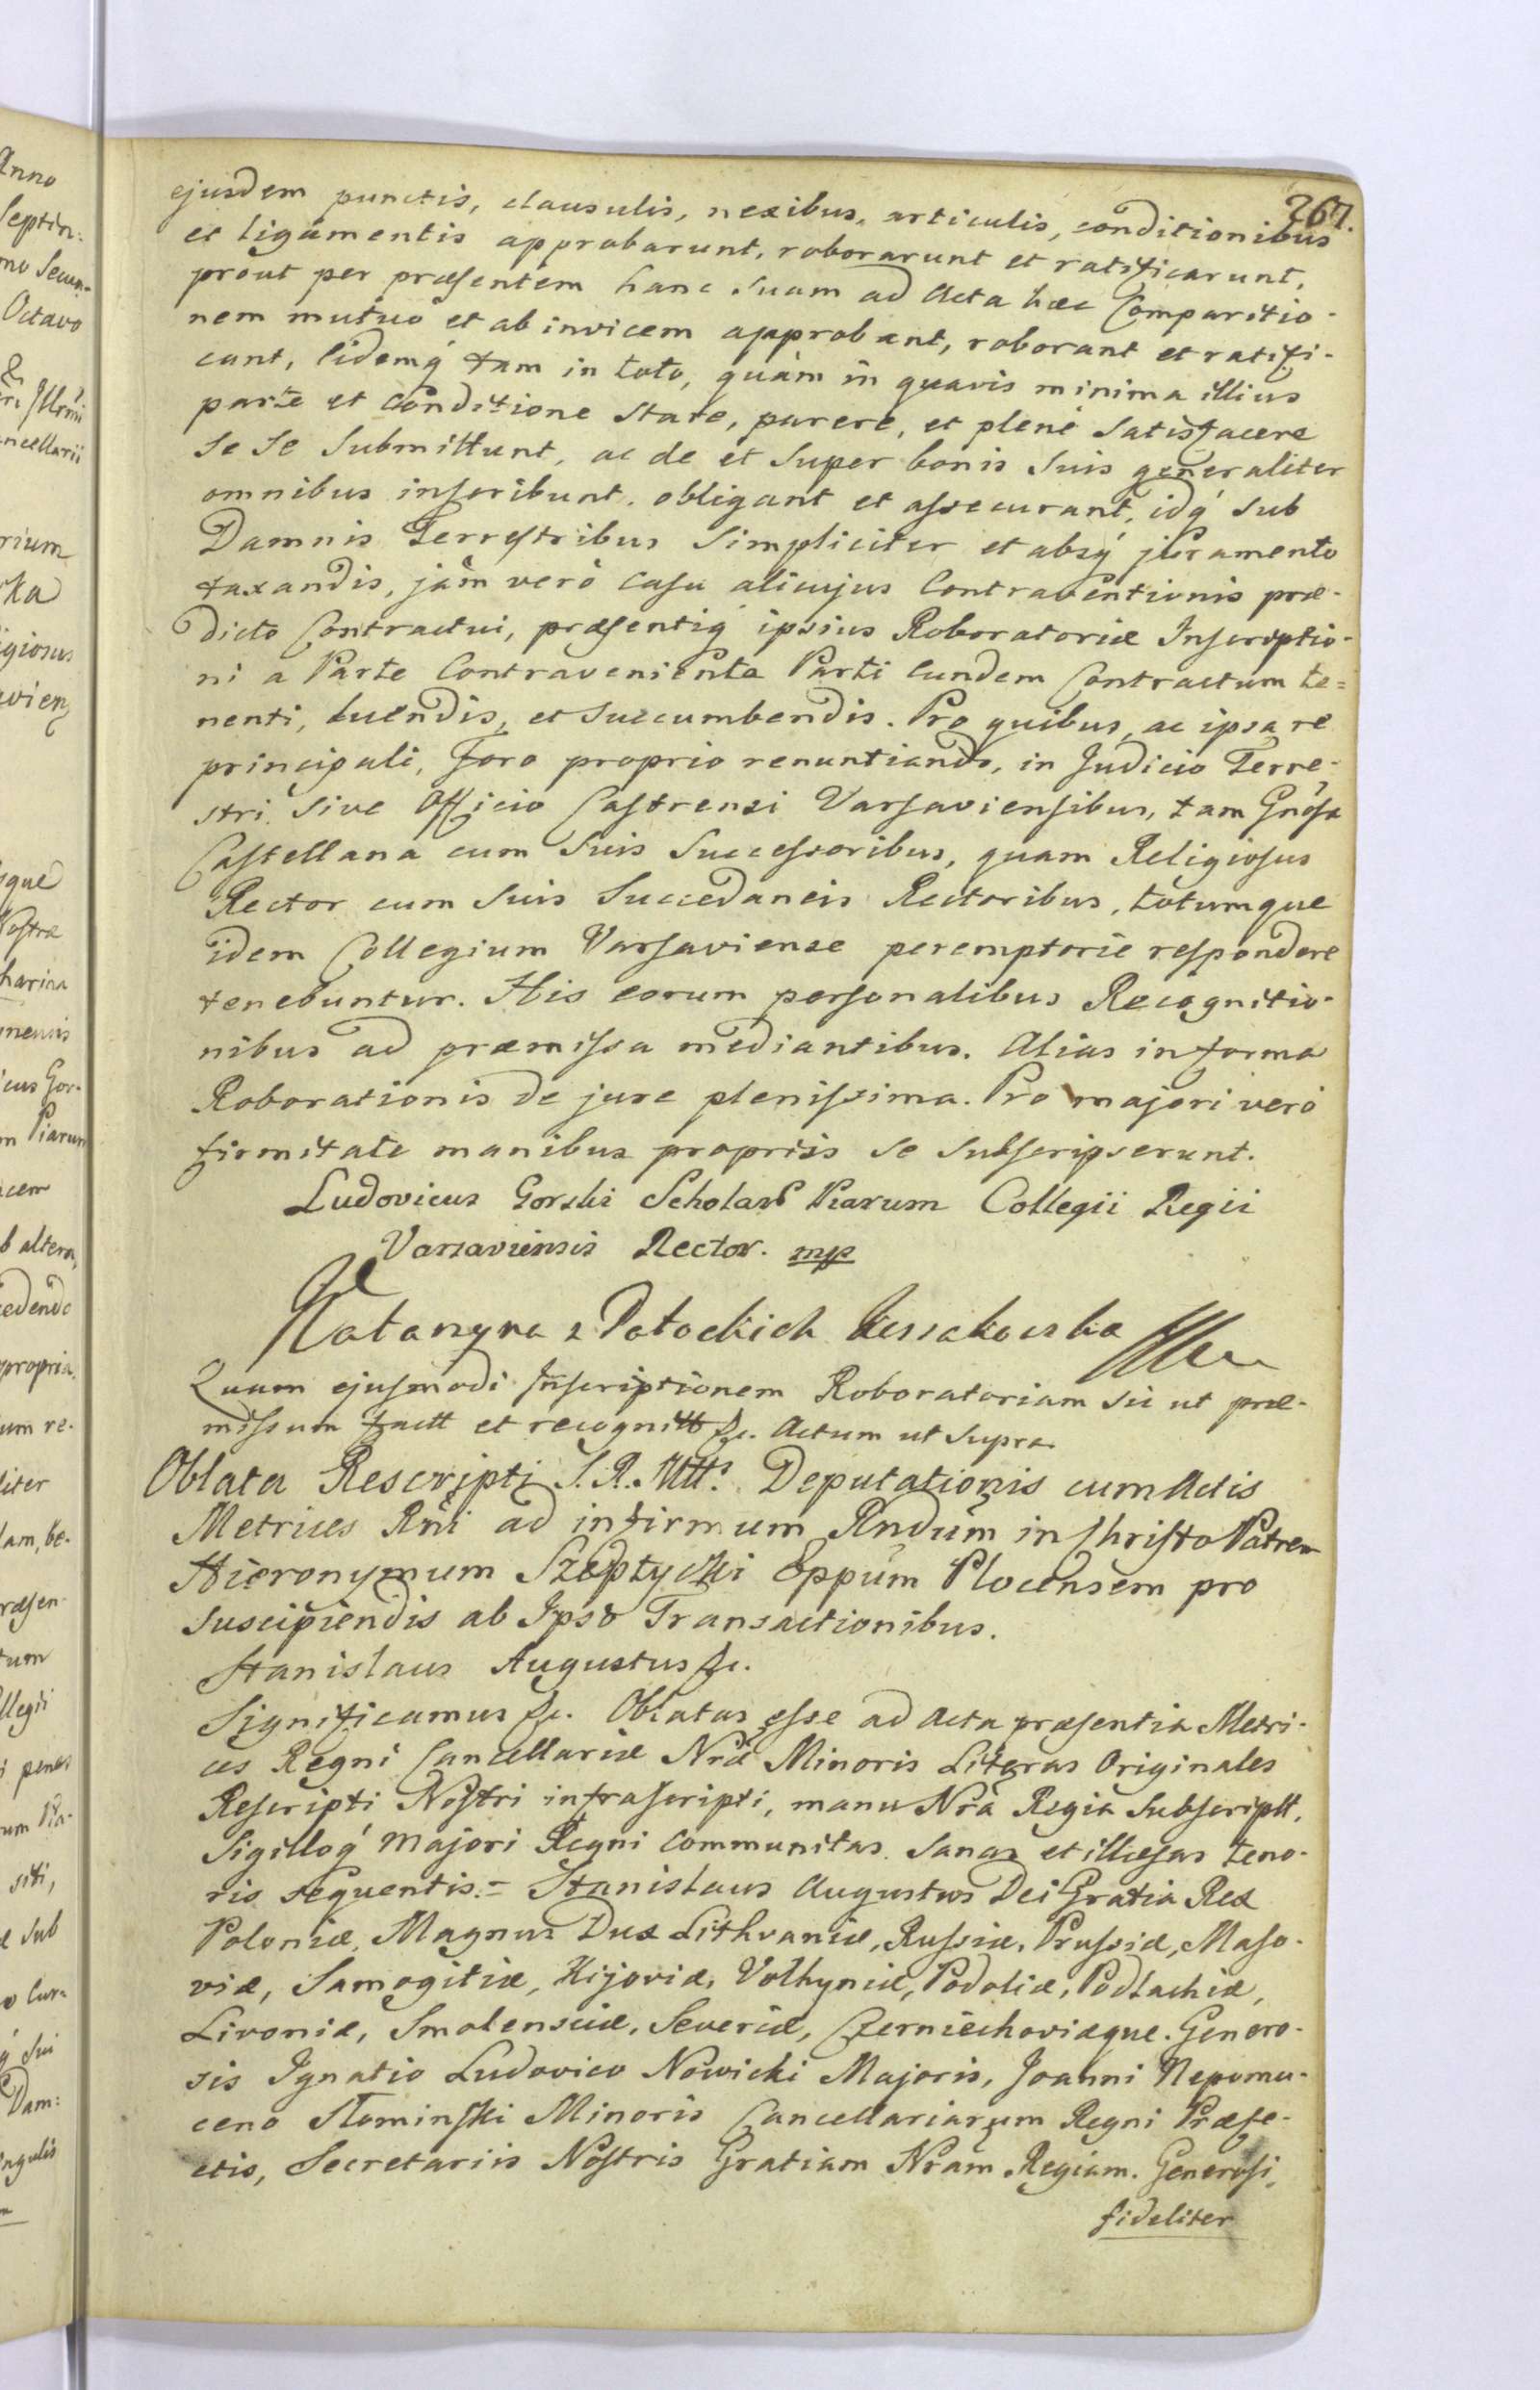 267.
ejusdem punctis, clausulis, nexibus, articulis, conditionibus
et ligamentis approbarunt, roborarunt et ratificarunt,
prout per præsentem hanc suam ad Acta hæc Comparitio-
nem mutuo et ab invicem approbant, roborant et ratifi-
cant, Eidemq́ tam in toto, quàm in quavis minima illius
parte et conditione stare, parere, et plenè satisfacere
se se submittunt, ac de et super bonis suis generaliter
omnibus inscribunt, obligant et assecurant, idq́ sub
Damnis Terrestribus simpliciter et absq́ juramento
taxandis, jàm verò casu alicujus Contraventionis præ-
dicto Contractui, præsentiq́ ipsius Roboratoriæ Inscriptio-
ni a Parte Contraveniente Parti eundem Contractum te=
nenti, luendis, et succumbendis. Pro quibus, ac ipsa re
principali, Foro proprio renuntiando, in Judicio Terre-
stri sive Officio Castrensi Varsaviensibus, tam Gnosa
Castellana cum suis Successoribus, quam Religiosus
Rector cum suis Succedaneis Rectoribus, totumque
idem Collegium Varsaviense peremptorie respondere
tenebuntur. His eorum personalibus Recognitio-
nibus ad præmissa mediantibus. Alias in forma
Roborationis de jure plenissima. Pro majori verò
firmitate manibus propriis se subscripserunt.
Ludovicus Gorski Scholar. Piarum Collegii Regii
Varsaviensis Rector. mp
Katarzyna z Potockich Kossakowska
Quam ejusmodi Inscriptionem Roboratoriam sic ut præ-
missum factt et recognitt &c. Actum ut supra.
Oblata Rescripti S. R. Mtt. Deputationis cum Actis
Metrices Rni ad infirmum Rndum in Christo Patrem
Hieronymum Szeptycki Eppum Plocensem pro
suscipiendis ab Ipso Transactionibus.
Stanislaus Augustus &c.
Significamus &c. Oblatas esse ad Acta præsentia Metri-
ces Regni Cancellariæ Nræ Minoris Literas Originales
Rescripti Nostri infrascripti, manu Nrâ Regiâ subscriptt,
Sigilloq́ Majori Regni communitas, sanas et illæsas teno-
ris sequentis.= Stanislaus Augustus Dei Gratia Rex
Poloniæ, Magnus Dux Lithvaniæ, Russiæ, Prussiæ, Maso-
viæ, Samogitiæ, Kijoviæ, Volhyniæ, Podoliæ, Podlachiæ,
Livoniæ, Smolensciæ, Severiæ, Czerniechoviæque. Genero-
sis Ignatio Ludovico Nowicki Majoris, Joanni Nepomu-
ceno Słominski Minoris Cancellariarum Regni Præfe-
ctis, Secretariis Nostris Gratiam Nram Regiam. Generosi,
fideliter